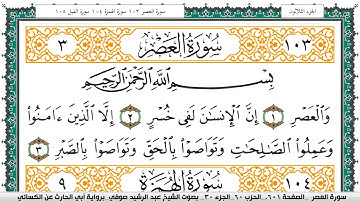 الجزء الثلاثون
سورة العصر ١٠٣ سورة الهمزة ١٠٤ سورة الفيل ١٠٥
١٠٣ سُورَةُ العَصْرِ ٣
بِسْمِ اللَّهِ الرَّحْمَٰنِ الرَّحِيمِ
وَالْعَصْرِ ١ إِنَّ الْإِنسَانَ لَفِي خُسْرٍ ٢ إِلَّا الَّذِينَ ءَامَنُوا
وَعَمِلُوا الصَّالِحَاتِ وَتَوَاصَوْا بِالْحَقِّ وَتَوَاصَوْا بِالصَّبْرِ ٣
١٠٤ سُورَةُ الهُمَزَةِ ٩
سورة العصر _ الصفحة ٦٠١ _ الحزب ٦٠ _ الجزء ٣٠ _ بصوت الشيخ عبد الرشيد صوفي _ برواية أبي الحارث عن الكسائي